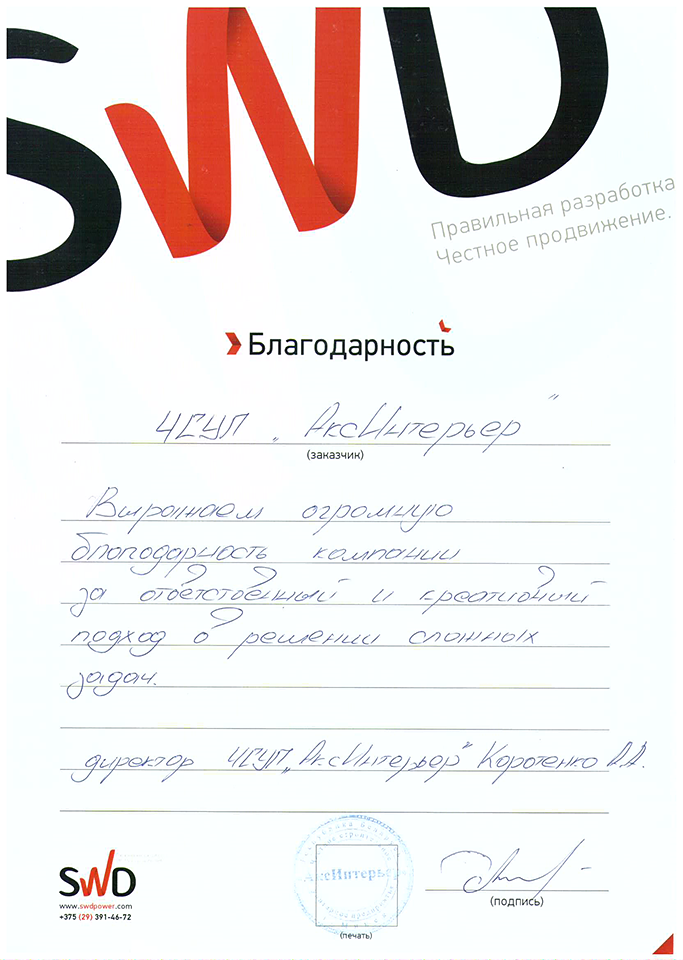 SWD
Правильная разработка
Честное продвижение.
Благодарность
ЧСУП „АксИнтерьер"
(заказчик)
Выражаем огромную
благодарность компании
за ответственный и креативный
подход в решении сложных
задач.
директор ЧСУП „АксИнтерьер" Коротенко А.А.
SWD
www.swdpower.com
+375 (29) 391-46-72
АксИнтерьер
(печать)
(подпись)